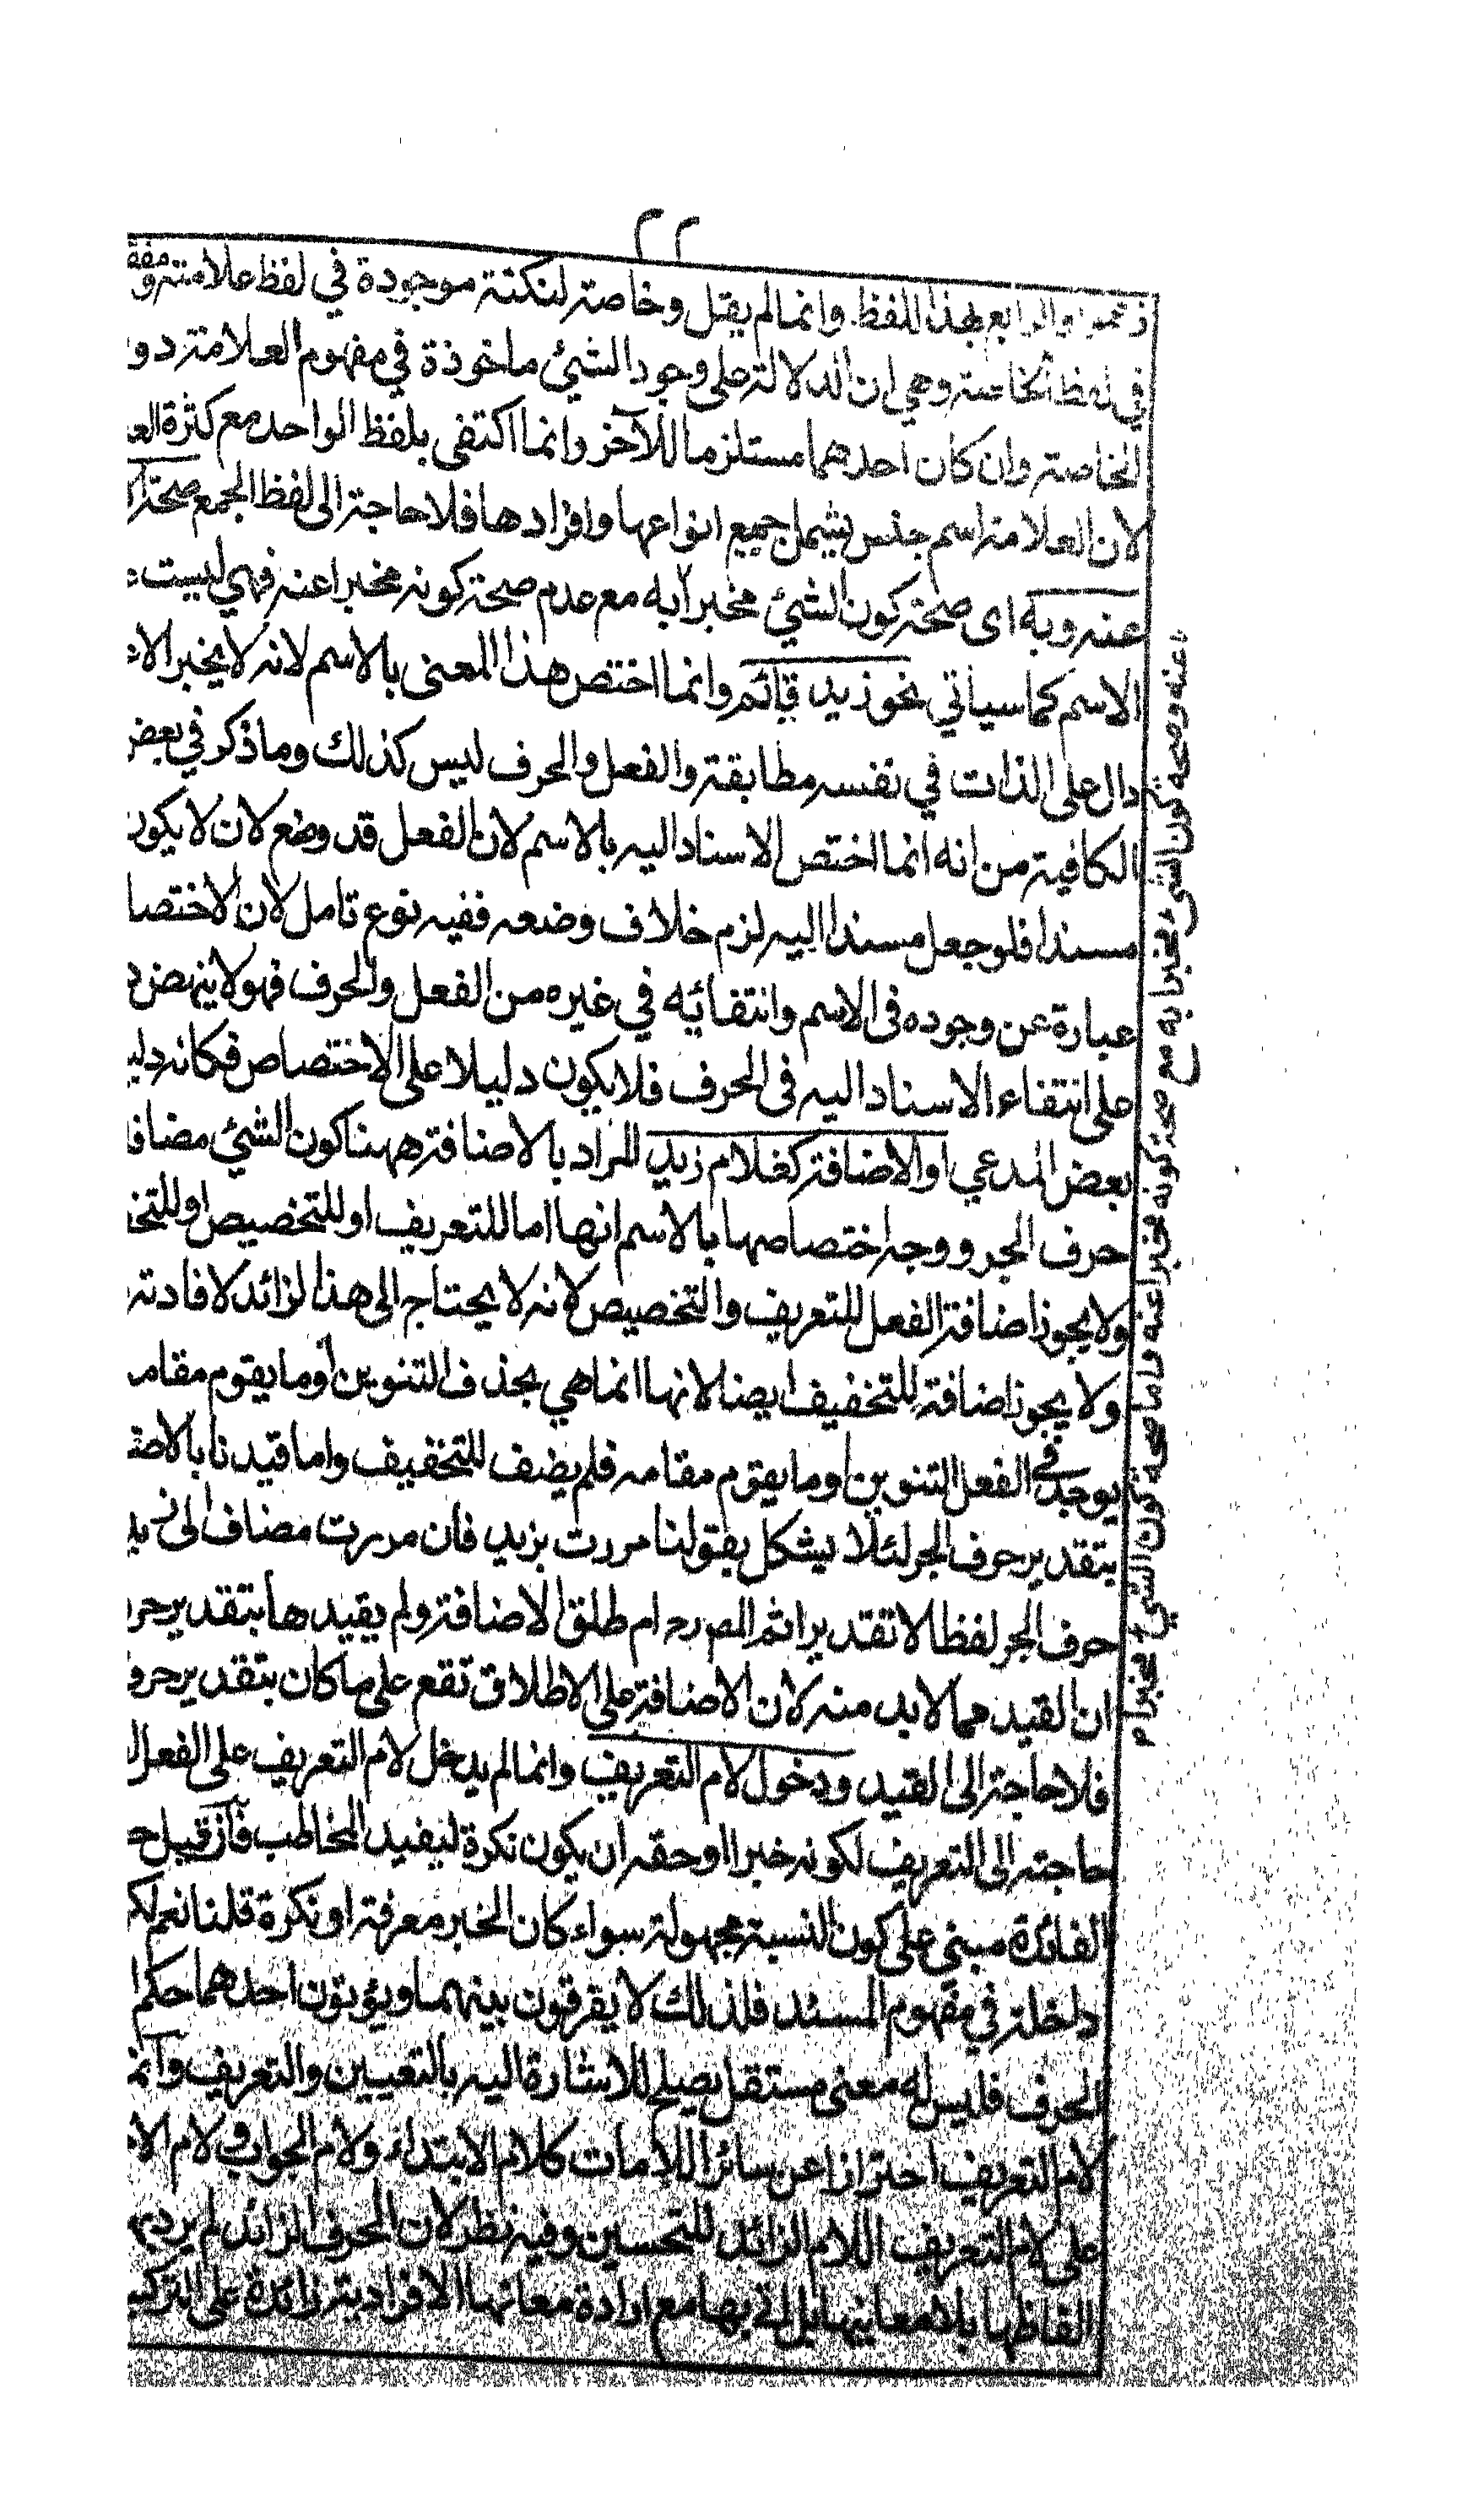 ٢٢
زعموا والرابع بهذا اللفظ وانما لم يقل وخاصته لنكتة موجودة في لفظ علامته ومفقو
في لفظ الخاصته وهي ان الدلالة على وجود الشئ ماخوذة في مفهوم العلامة دو
الخاصة وان كان احدهما مستلزما للآخر وانما اكتفى بلفظ الواحد مع كثرة الع
لان العلامة اسم جنس يشمل جميع انواعها وافرادها فلا حاجة الى لفظ الجمع صحة
عنه وبه اى صحة كون الشئ مخبرا به مع عدم صحة كونه مخبرا عنه فهي ليست
الاسم كما سياتي نحو زيد قائم وانما اختص هذا المعنى بالاسم لانه لا يخبر الا
دال على الذات في نفسه مطابقة والفعل والحرف ليس كذلك وما ذكر في بعض
الكافية من انه انما اختص الاسناد اليه بالاسم لان الفعل قد وضع لان لا يكون
مسندا فلو جعل مسندا اليه لزم خلاف وضعه ففيه نوع تامل لان الاختصا
عبارة عن وجوده في الاسم وانتفائه في غيره من الفعل والحرف فهو لا ينهض د
على انتفاء الاسناد اليه في الحرف فلا يكون دليلا على الاختصاص فكانه دلي
بعض المدعي او الاضافة كغلام زيد المراد بالاضافة ههنا كون الشئ مضافا
حرف الجر ووجه اختصاصها بالاسم انها اما للتعريف او للتخصيص او للتخ
ولا يجوز اضافة الفعل للتعريف والتخصيص لانه لا يحتاج الى هذا الزائد لافادته
ولا يجوز اضافة للتخفيف ايضا لانها انما هي بحذف التنوين أوما يقوم مقامه
يوجد في الفعل التنوين أوما يقوم مقامه فلم يضف للتخفيف واما قيدنا بالاضا
بتقدير حرف الجر لئلا يشكل بقولنا مررت بزيد فان مررت مضاف الى زيد
حرف الجر لفظا لا تقديرا ثم المص رح ام طلق الاضافة ولم يقيدها بتقدير حر
ان القيد مما لا بد منه لان الاضافة على الاطلاق تقع على ما كان بتقدير حرو
فلا حاجة الى القيد ودخول لام التعريف وانما لم يدخل لام التعريف على الفعل ال
حاجته الى التعريف لكونه خبرا او حقه ان يكون نكرة ليفيد المخاطب فان قيل ح
الفائدة مبني على كون النسبة مجهولة سواء كان الخبر معرفة او نكرة قلنا نعم لك
داخلة في مفهوم المسند فلذلك لا يفرقون بينهما ويؤتون احدهما حكم ا
الحرف فليس له معنى مستقل يصلح للاشارة اليه بالتعيين والتعريف وانم
لام التعريف احترازا عن سائر اللامات كلام الابتداء ولام الجواب ولام الا
على لام التعريف اللام الزائد للتحسين وفيه نظر لان الحرف الزائد لم يرد
الفاظها بلا معانيها بل اتى بها مع ارادة معانيها الافرادية زائدة على التركي
عنه وصحة كون الشئ مخبرا به مع صحة كونه مخبرا عنه واما صحة كون الشئ مخبرا م